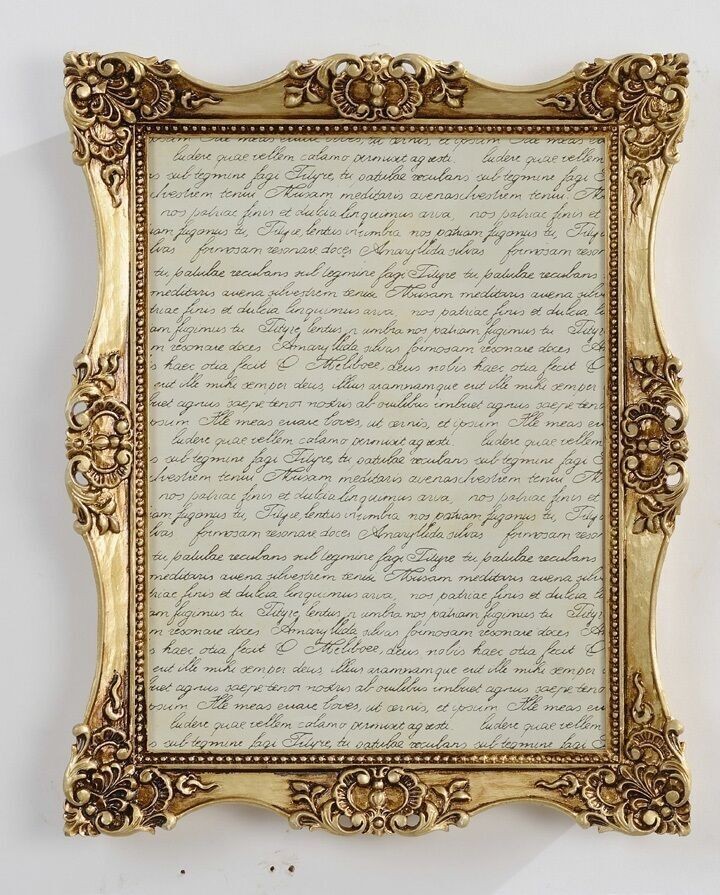 ludere quae vellem calamo permisit agresti. ludere quae vellem
sub tegmine fagi Tityre, tu patulae recubans sub tegmine fagi
lvestrem tenui Musam meditaris avenaslvestrem tenui. M
nos patriae finis et dulcia linquimus arva, nos patriae finis et
am fugimus tu, Tityre, lentus in umbra nos patriam fugimus tu, Tity
lvas formosam resonare doces Amaryllida silvas formosam reson
tu patulae recubans sub tegmine fagi Tityre tu patulae recubans
meditaris avena silvestrem tenui Musam meditaris avena silv
triae finis et dulcia linquimus arva, nos patriae finis et dulcia
am fugimus tu Tityre, lentus, n umbra nos patriam fugimus tu Tityr
m resonare doces Amaryllida silvas formosam resonare doces A
s haec otia fecit O Meliboee, deus nobis haec otia fecit
erit ille mihi semper deus, illius aramnamque erit ille mihi semper
buet agnus saepe tener nostris ab ovilibus imbuet agnus saepe
psum Ille meas errare boves, ut cernis, et ipsum Ille meas er
ludere quae vellem calamo permisit agresti. ludere quae vellem
s sub tegmine fagi Tityre, tu patulae recubans sub tegmine fagi
lvestrem tenui Musam meditaris avenaslvestrem tenui M
nos patriae finis et dulcia linquimus arva, nos patriae finis et
am fugimus tu, Tityre, lentus in umbra nos patriam fugimus tu, Tity
lvas formosam resonare doces Amaryllida silvas formosam reson
tu patulae recubans sub tegmine fagi Tityre, tu patulae recubans
meditaris avena silvestrem tenui Musam meditaris avena silv
triae finis et dulcia linquimus arva, nos patriae finis et dulcia
am fugimus tu Tityre, lentus, n umbra nos patriam fugimus tu Tityr
m resonare doces Amaryllida silvas formosam resonare doces A
s haec otia fecit O Meliboee, deus nobis haec otia fecit
erit ille mihi semper deus, illius aramnamque erit ille mihi semper
buet agnus saepe tener nostris ab ovilibus imbuet agnus saepe
psum Ille meas errare boves, ut cernis, et ipsum Ille meas er
ludere quae vellem calamo permisit agresti. ludere quae vellem
s sub tegmine fagi Tityre, tu patulae recubans sub tegmine fagi